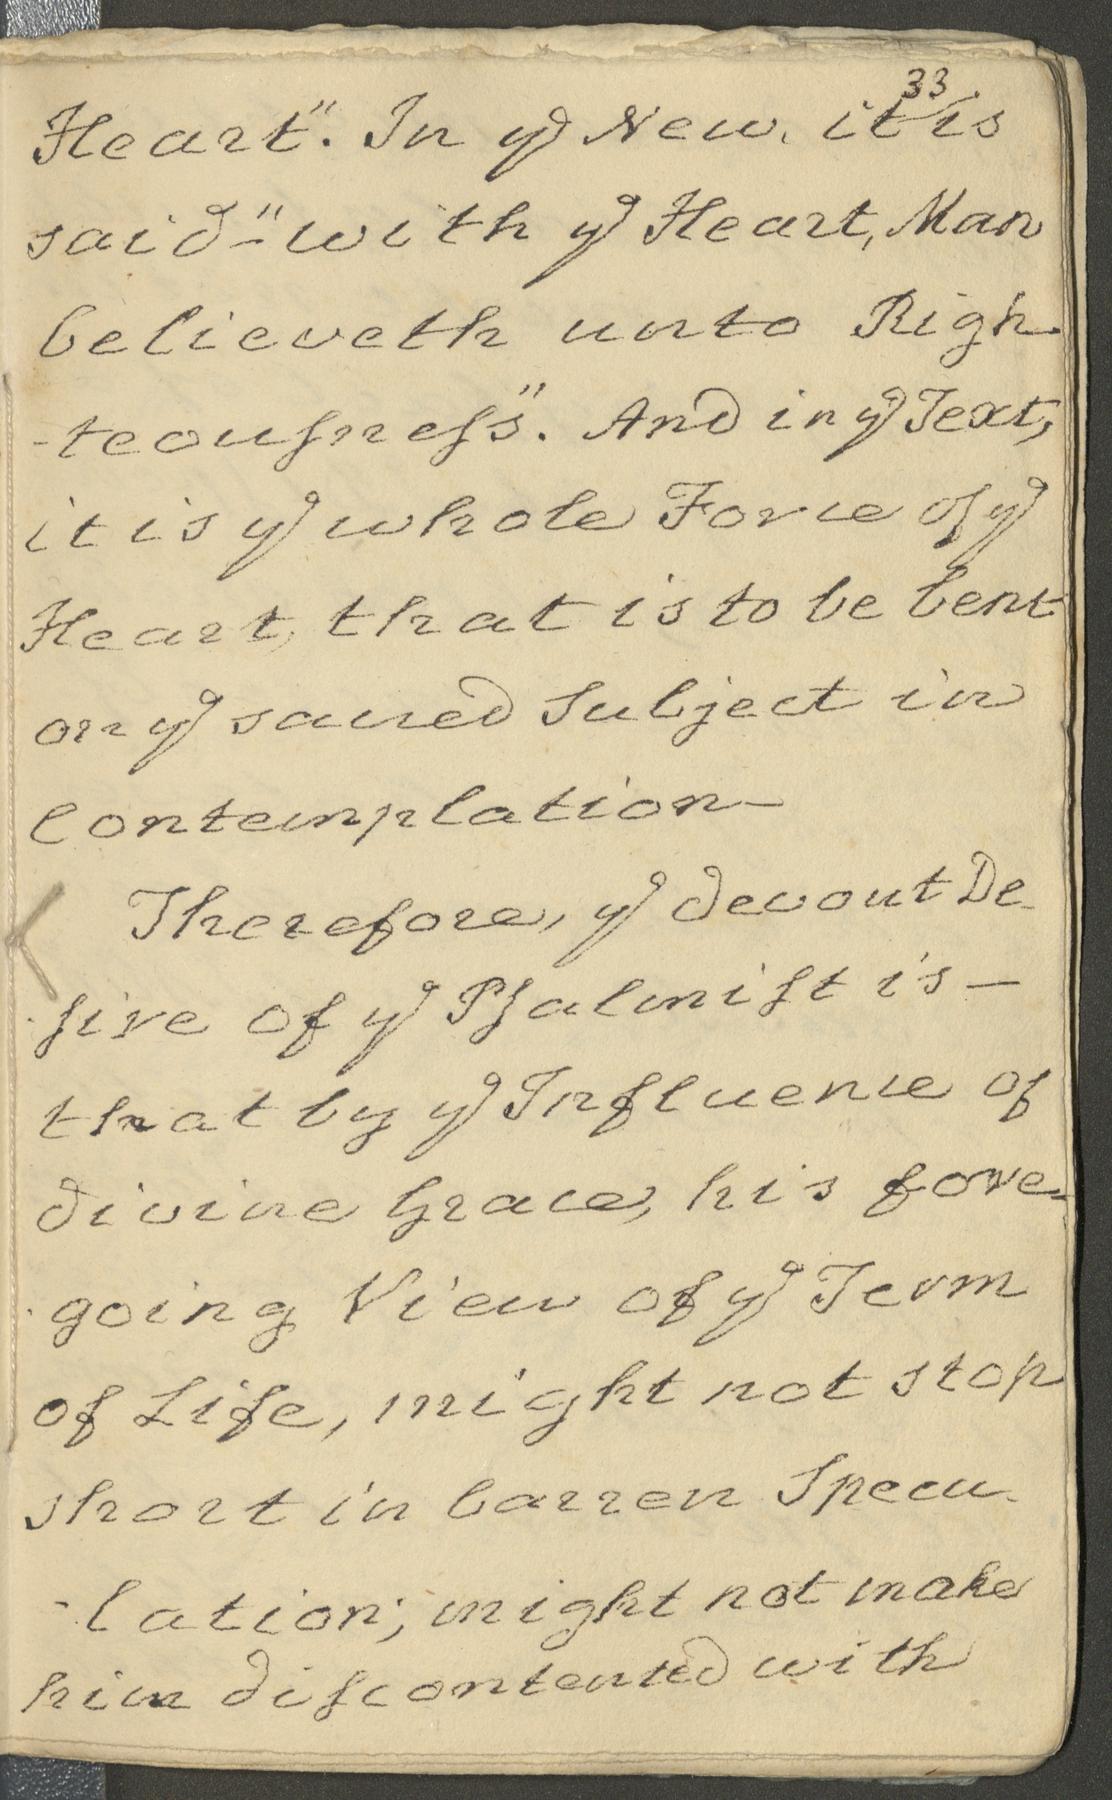 33
Heart". In yͤ New, it is
said-"with yͤ Heart, Man
believeth unto Righ-
-teouſneſs". And in yͤ Text,
it is yͤ whole Force of yͤ
Heart, that is to be bent
on yͤ sacred Subject in
Contemplation-
Therefore, yͤ devout De-
-ſire of yͤ Pſalmiſt is-
that by yͤ Influence of
divine Grace, his fore-
-going View of yͤ Term
of Life, might not stop
short in barren Specu-
-lation; might not make
him diſcontented with